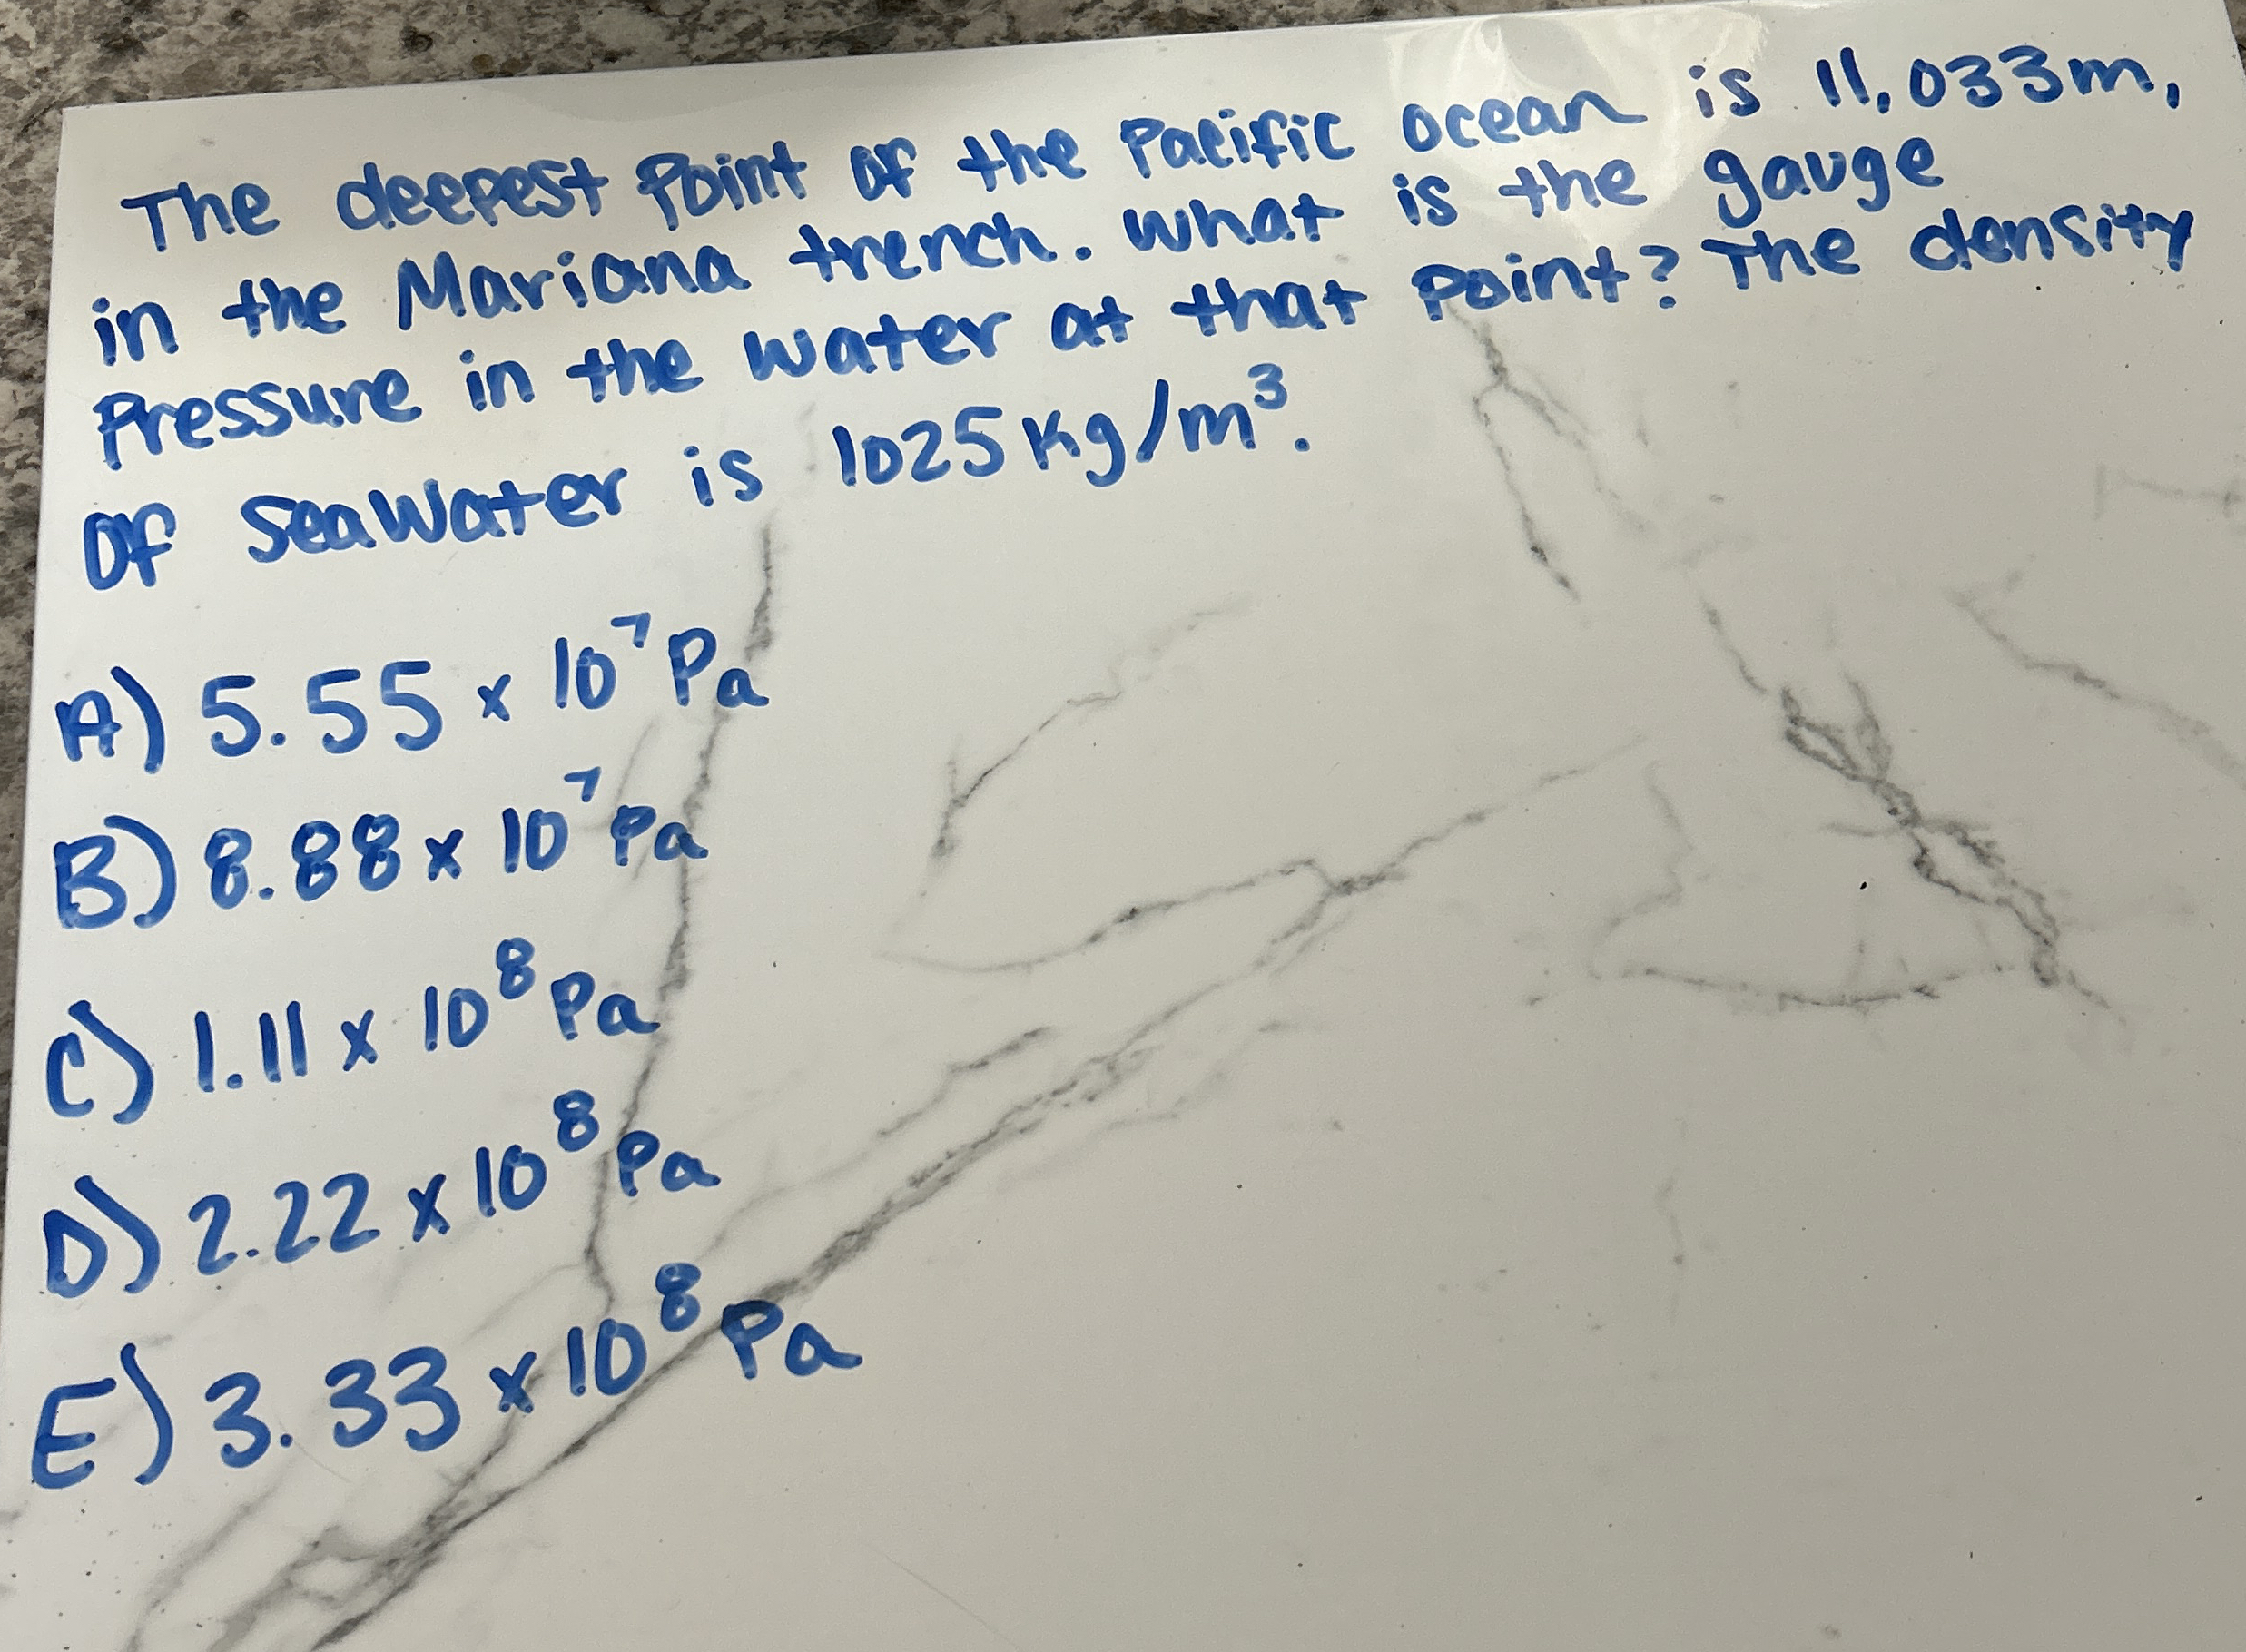 The deepest point of the Pacific ocean is 11,033m,
in the Mariana trench. What is the gauge
Pressure in the water at that Point? The density
Of SeaWater is 1025 Kg/m³.
A) 5.55 x 10⁷ Pa
B) 8.88 x 10⁷ Pa
C) 1.11 x 10⁸ Pa
D) 2.22 x 10⁸ Pa
E) 3.33 x 10⁸ Pa